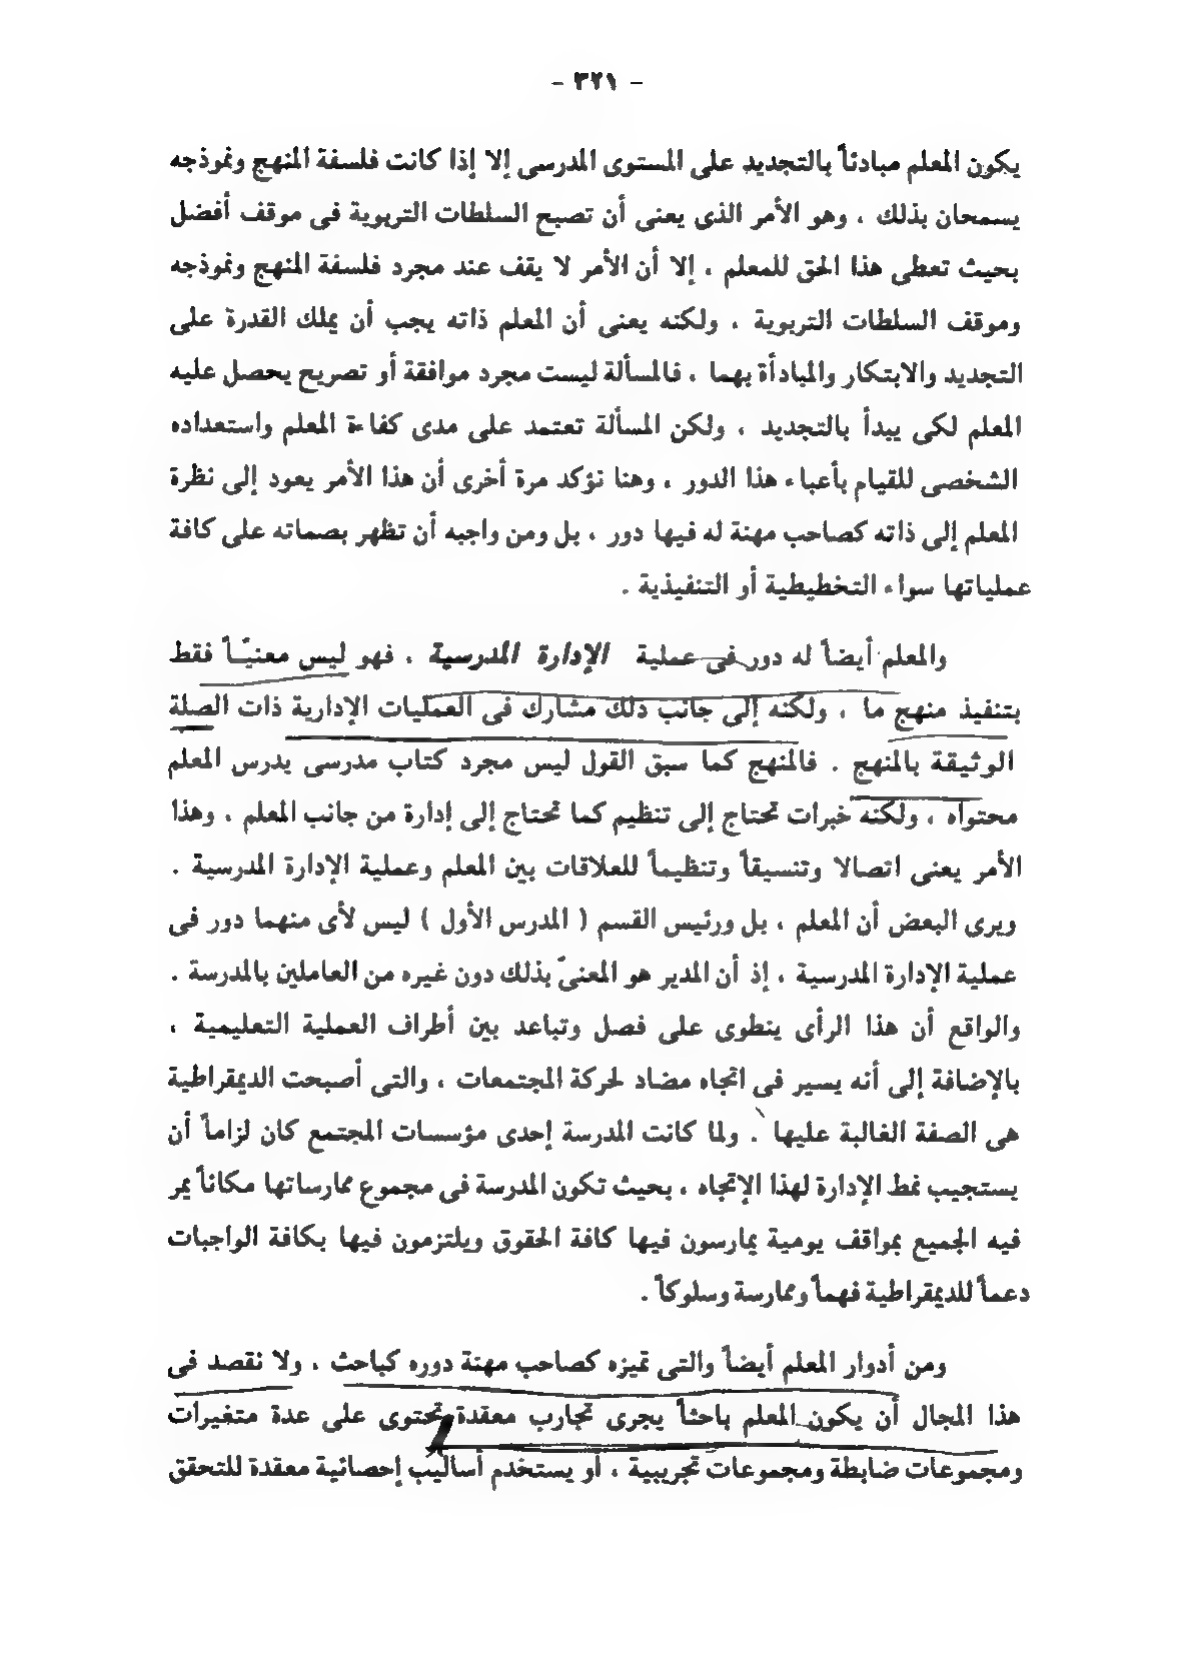 - ٣٢١ -
يكون المعلم مبادئاً بالتجديد على المستوى المدرسى إلا إذا كانت فلسفة المنهج ونموذجه
يسمحان بذلك ، وهو الأمر الذى يعنى أن تصبح السلطات التربوية فى موقف أفضل
بحيث تعطى هذا الحق للمعلم ، إلا أن الأمر لا يقف عند مجرد فلسفة المنهج ونموذجه
وموقف السلطات التربوية ، ولكنه يعنى أن المعلم ذاته يجب أن يملك القدرة على
التجديد والابتكار والمبادأة بهما ، فالمسألة ليست مجرد موافقة أو تصريح يحصل عليه
المعلم لكى يبدأ بالتجديد ، ولكن المسألة تعتمد على مدى كفاءة المعلم واستعداده
الشخصى للقيام بأعباء هذا الدور ، وهنا نؤكد مرة أخرى أن هذا الأمر يعود إلى نظرة
المعلم إلى ذاته كصاحب مهنة له فيها دور ، بل ومن واجبه أن تظهر بصماته على كافة
عملياتها سواء التخطيطية أو التنفيذية .
والمعلم أيضاً له دور فى عملية الإدارة المدرسية ، فهو ليس معنيّاً فقط
بتنفيذ منهج ما ، ولكنه إلى جانب ذلك مشارك فى العمليات الإدارية ذات الصلة
الوثيقة بالمنهج . فالمنهج كما سبق القول ليس مجرد كتاب مدرسى يدرس المعلم
محتواه ، ولكنه خبرات تحتاج إلى تنظيم كما تحتاج إلى إدارة من جانب المعلم ، وهذا
الأمر يعنى اتصالا وتنسيقاً وتنظيماً للعلاقات بين المعلم وعملية الإدارة المدرسية .
ويرى البعض أن المعلم ، بل ورئيس القسم ( المدرس الأول ) ليس لأى منهما دور فى
عملية الإدارة المدرسية ، إذ أن المدير هو المعنىّ بذلك دون غيره من العاملين بالمدرسة .
والواقع أن هذا الرأى ينطوى على فصل وتباعد بين أطراف العملية التعليمية ،
بالإضافة إلى أنه يسير فى اتجاه مضاد لحركة المجتمعات ، والتى أصبحت الديمقراطية
هى الصفة الغالبة عليها . ولما كانت المدرسة إحدى مؤسسات المجتمع كان لزاماً أن
يستجيب نمط الإدارة لهذا الإتجاه ، بحيث تكون المدرسة فى مجموع ممارساتها مكاناً يمر
فيه الجميع بمواقف يومية يمارسون فيها كافة الحقوق ويلتزمون فيها بكافة الواجبات
دعماً للديمقراطية فهماً وممارسة وسلوكاً .
ومن أدوار المعلم أيضاً والتى تميزه كصاحب مهنة دوره كباحث ، ولا نقصد فى
هذا المجال أن يكون المعلم باحثاً يجرى تجارب معقدة تحتوى على عدة متغيرات
ومجموعات ضابطة ومجموعات تجريبية ، أو يستخدم أساليب إحصائية معقدة للتحقق